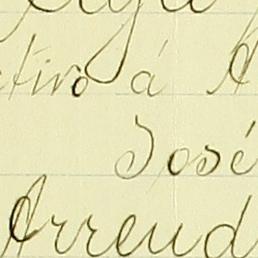 ctivo á
José
Arrend